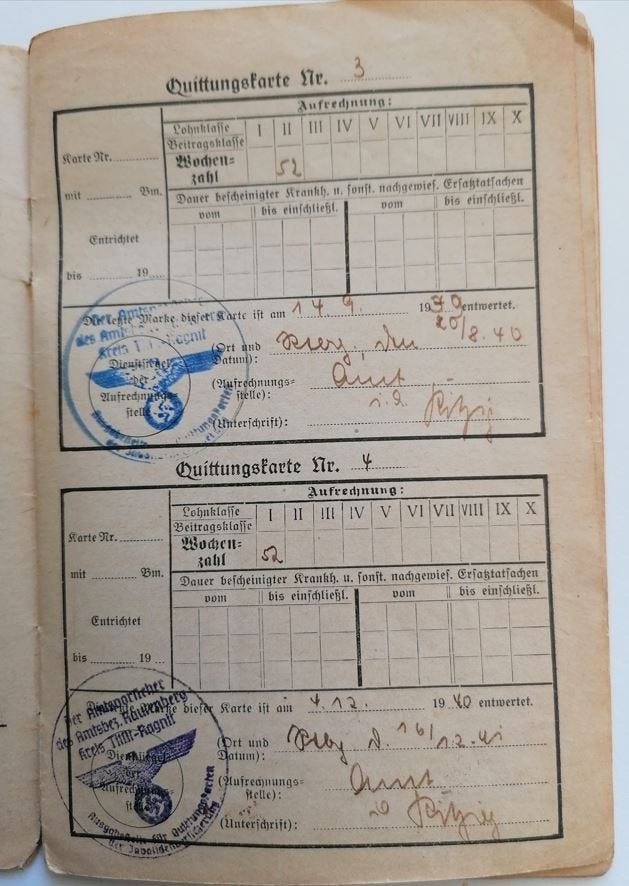 Quittungskarte Nr. 3
Aufrechnung:
Lohnklasse
Beitragsklasse
I II III IV V VI VII VIII IX X
Karte Nr.
Wochen-
zahl
52
mit Bm.
Dauer bescheinigter Krankh. u. sonst. nachgewies. Ersatztatsachen
vom bis einschließl. vom bis einschließl.
Entrichtet
bis 19
Die letzte Marke dieser Karte ist am 14 9. 19 entwertet.
Der Amtsvorsteher
des
Kreis Tilsit-Ragnit
Dienstsiegel
der
Aufrechnungs-
stelle
(Ort und
Datum): den 20/8. 40
(Aufrechnungs-
stelle): Amt
(Unterschrift):
Quittungskarte Nr. 4
Aufrechnung:
Lohnklasse
Beitragsklasse
I II III IV V VI VII VIII IX X
Karte Nr.
Wochen-
zahl
52
mit Bm.
Dauer bescheinigter Krankh. u. sonst. nachgewies. Ersatztatsachen
vom bis einschließl. vom bis einschließl.
Entrichtet
bis 19
dieser Karte ist am 4. 12. 19 40 entwertet.
Der Amtsvorsteher
des Amtsbez. Rautenberg
Kreis Tilsit-Ragnit
Ausgabestelle für Quittungskarten
der Invalidenversicherung
(Ort und
Datum): d. 16/12. 41
(Aufrechnungs-
stelle): Amt
(Unterschrift):